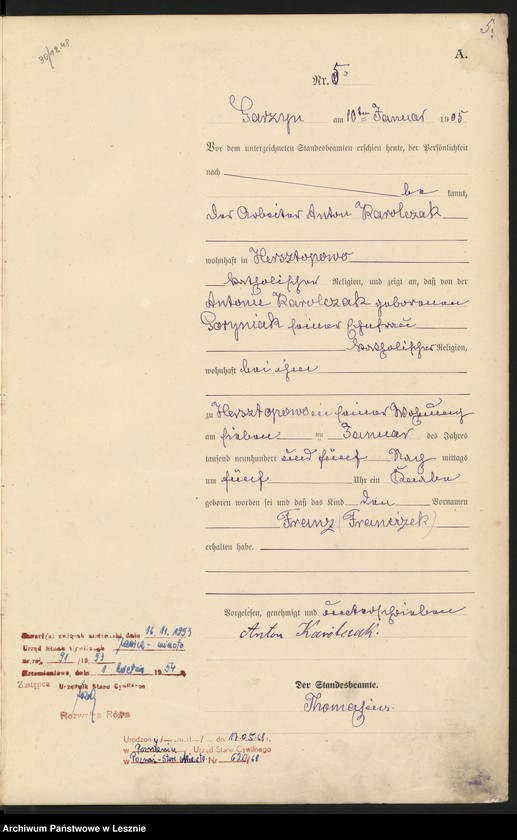 5.
30/1248
A.
Nr. 5
Garzyn am 10ten Januar 1905
Vor dem unterzeichneten Standesbeamten erschien heute, der Persönlichkeit
nach
be kannt,
der Arbeiter Anton Karolczak
wohnhaft in Hersztopowo
katholischer Religion, und zeigt an, daß von der
Antonie Karolczak geborenen
Goryniak seiner Ehefrau
katholischer Religion,
wohnhaft bei ihm
zu Hersztopowo in seiner Wohnung
am sieben ten Januar des Jahres
tausend neunhundert und fünf Nach mittags
um fünf Uhr ein Knabe
geboren worden sei und daß das Kind den Vornamen
Franz (Franciszek)
erhalten habe.
Vorgelesen, genehmigt und unterschrieben
Anton Karolczak.
Der Standesbeamte.
Zawarł(a) związek małżeński dnia 16.11.1953
Urząd Stanu Cywilnego miasto
nr. rej. 91/19 53
Krzemieniewo, dnia 1 kwietnia 1954 r.
Zastępca Urzędnik Stanu Cywilnego
Rozwora Róża
dn. 17.05.68 r.
w Poznaniu Urząd Stanu Cywilnego
w Poznań-Stare Miasto Nr 620/68
Archiwum Państwowe w Lesznie